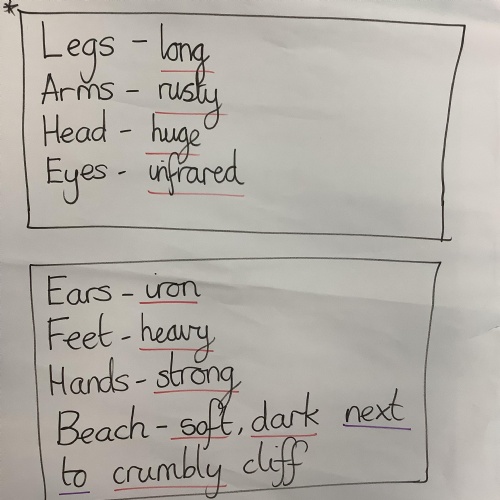 *
Legs - long
Arms - rusty
Head - huge
Eyes - infrared
Ears - iron
Feet - heavy
Hands - strong
Beach - soft, dark next
to crumbly cliff